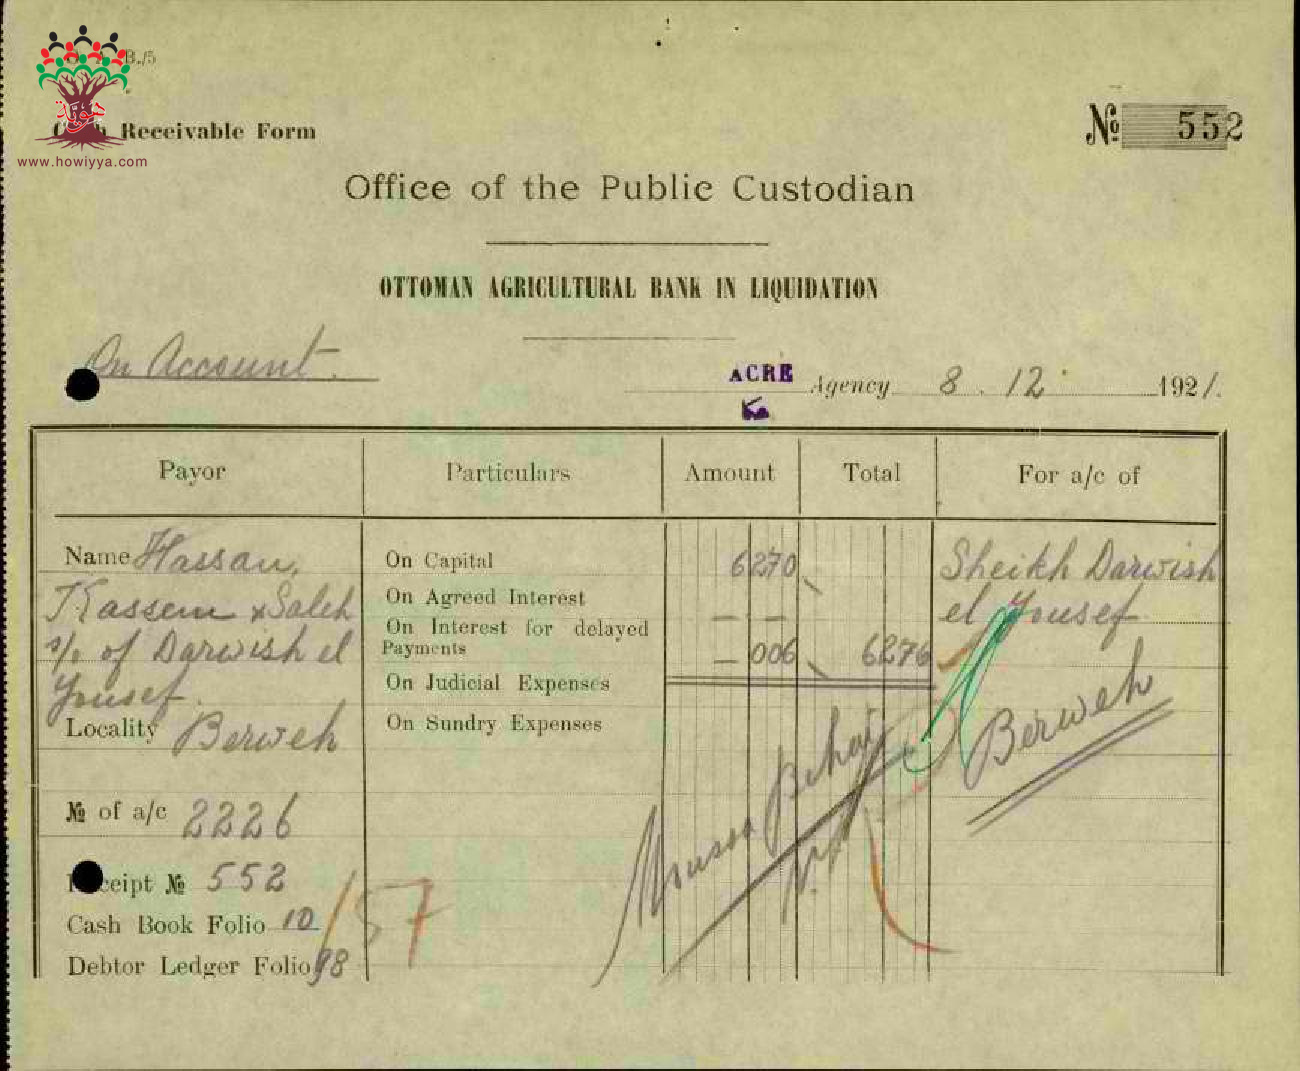 B./5
هوية
www.howiyya.com
Receivable Form
№ 552
Office of the Public Custodian
OTTOMAN AGRICULTURAL BANK IN LIQUIDATION
On Account.
ACRE Agency 8. 12. 1921.
Payor Particulars Amount Total For a/c of
Name Hassan,
Kassem & Saleh
s/o of Darwish el
Yousef.
Locality Berweh
№ of a/c 2226
Receipt № 552
Cash Book Folio 10
Debtor Ledger Folio 98
157
On Capital 6270
On Agreed Interest — —
On Interest for delayed
Payments — 006 6276
On Judicial Expenses
On Sundry Expenses
Sheikh Darwish
el Yousef
Berweh
Moussa